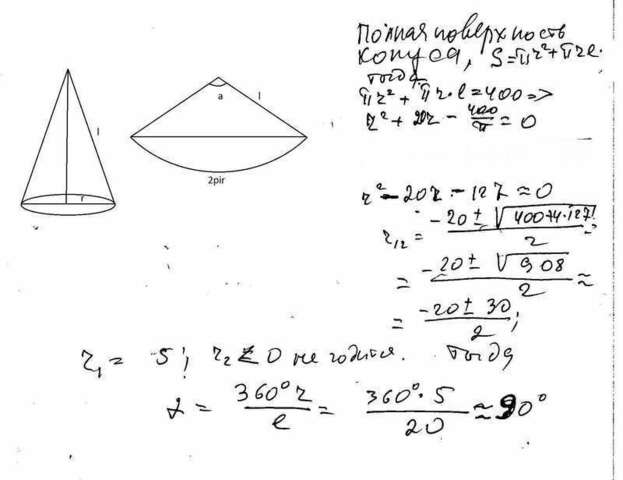 Полная поверхность
конуса, S=πr²+πrl.
тогда
πr²+πr·l=400=>
r²+20r-400/π=0
l
r
a
l
2pir
r²-20r-127≈0
r₁₂=(-20±√(400+4·127))/2=
=(-20±√908)/2≈
=(-20±30)/2;
r₁=5; r₂<0 не годится. Тогда
α=360°r/l=360°·5/20≈90°